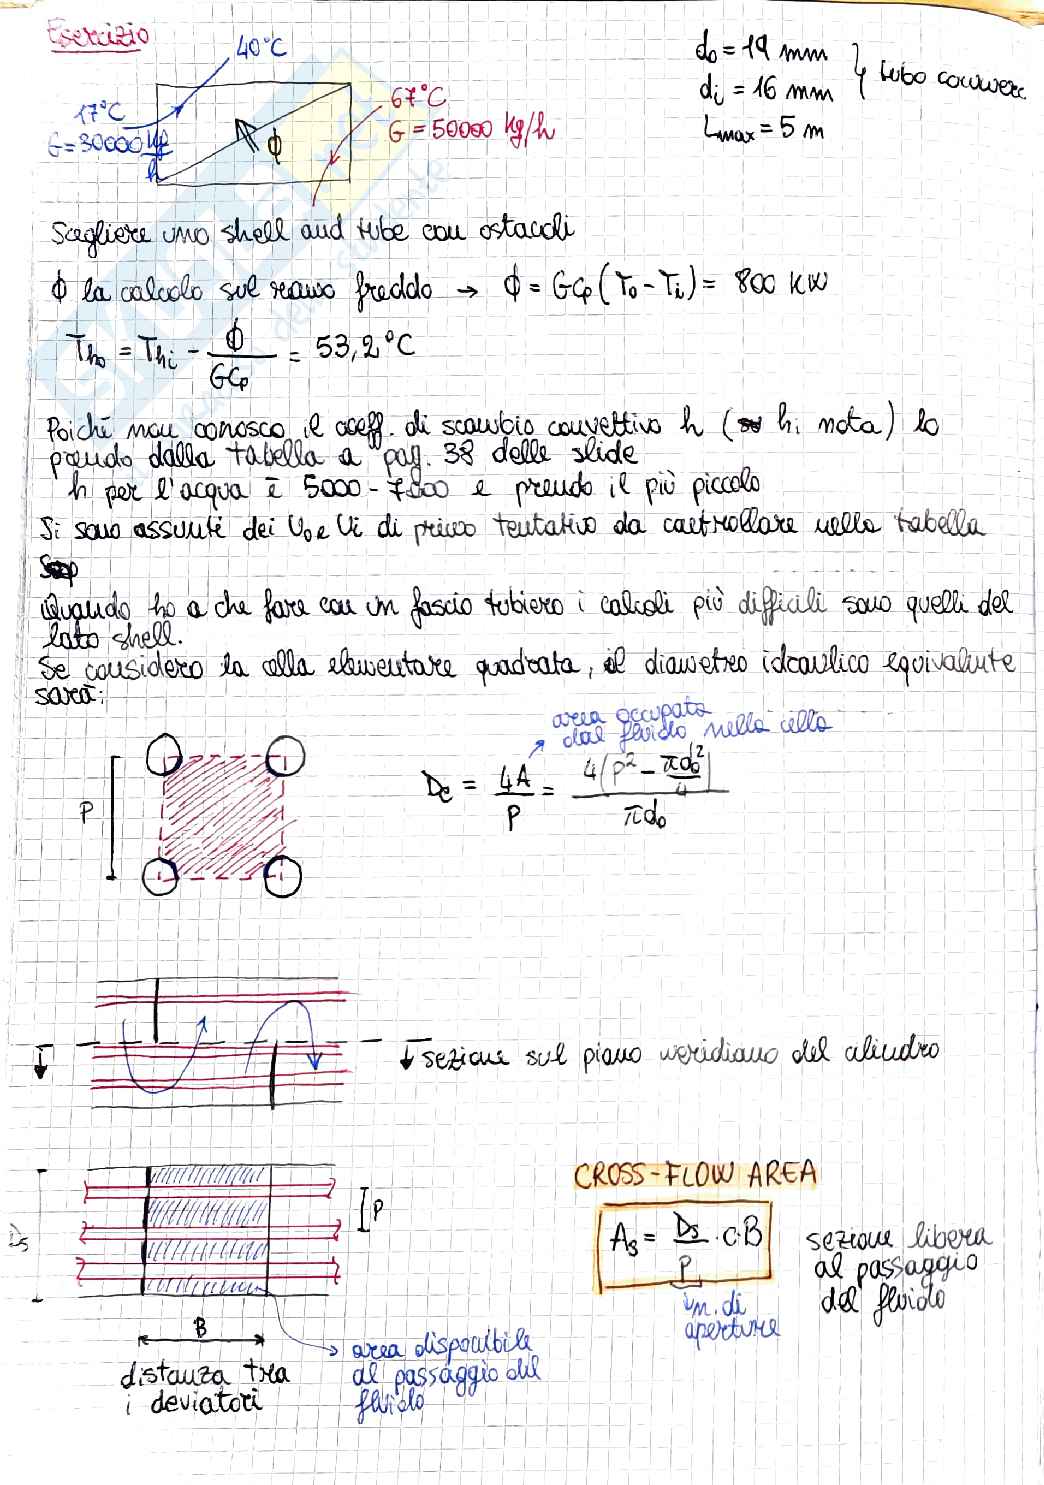 Esercizio
40°C
17°C
G = 30000 kg/h
67°C
G = 50000 kg/h
ϕ
do = 19 mm
di = 16 mm
Lmax = 5 m
tubo commerc
Scegliere uno shell and tube con ostacoli
ϕ la calcolo sul ramo freddo → ϕ = GCp (To - Ti) = 800 kW
Tho = Thi - ϕ/GCp = 53,2°C
Poiché non conosco il coeff. di scambio convettivo h (hi nota) lo
prendo dalla tabella a pag. 38 delle slide
h per l'acqua è 5000-7000 e prendo il più piccolo
Si sono assunti dei Uo e Ui di primo tentativo da controllare nella tabella
Quando ho a che fare con un fascio tubiero i calcoli più difficili sono quelli del
lato shell.
Se considero la cella elementare quadrata, il diametro idraulico equivalente
sarà:
area occupata
dal fluido nella cella
De = 4A/P = 4(p² - πdo²/4)/πdo
P
sezione sul piano meridiano del cilindro
Ds
P
B
distanza tra
i deviatori
area disponibile
al passaggio del
fluido
CROSS-FLOW AREA
As = Ds/P · C · B
n. di
aperture
sezione libera
al passaggio
del fluido